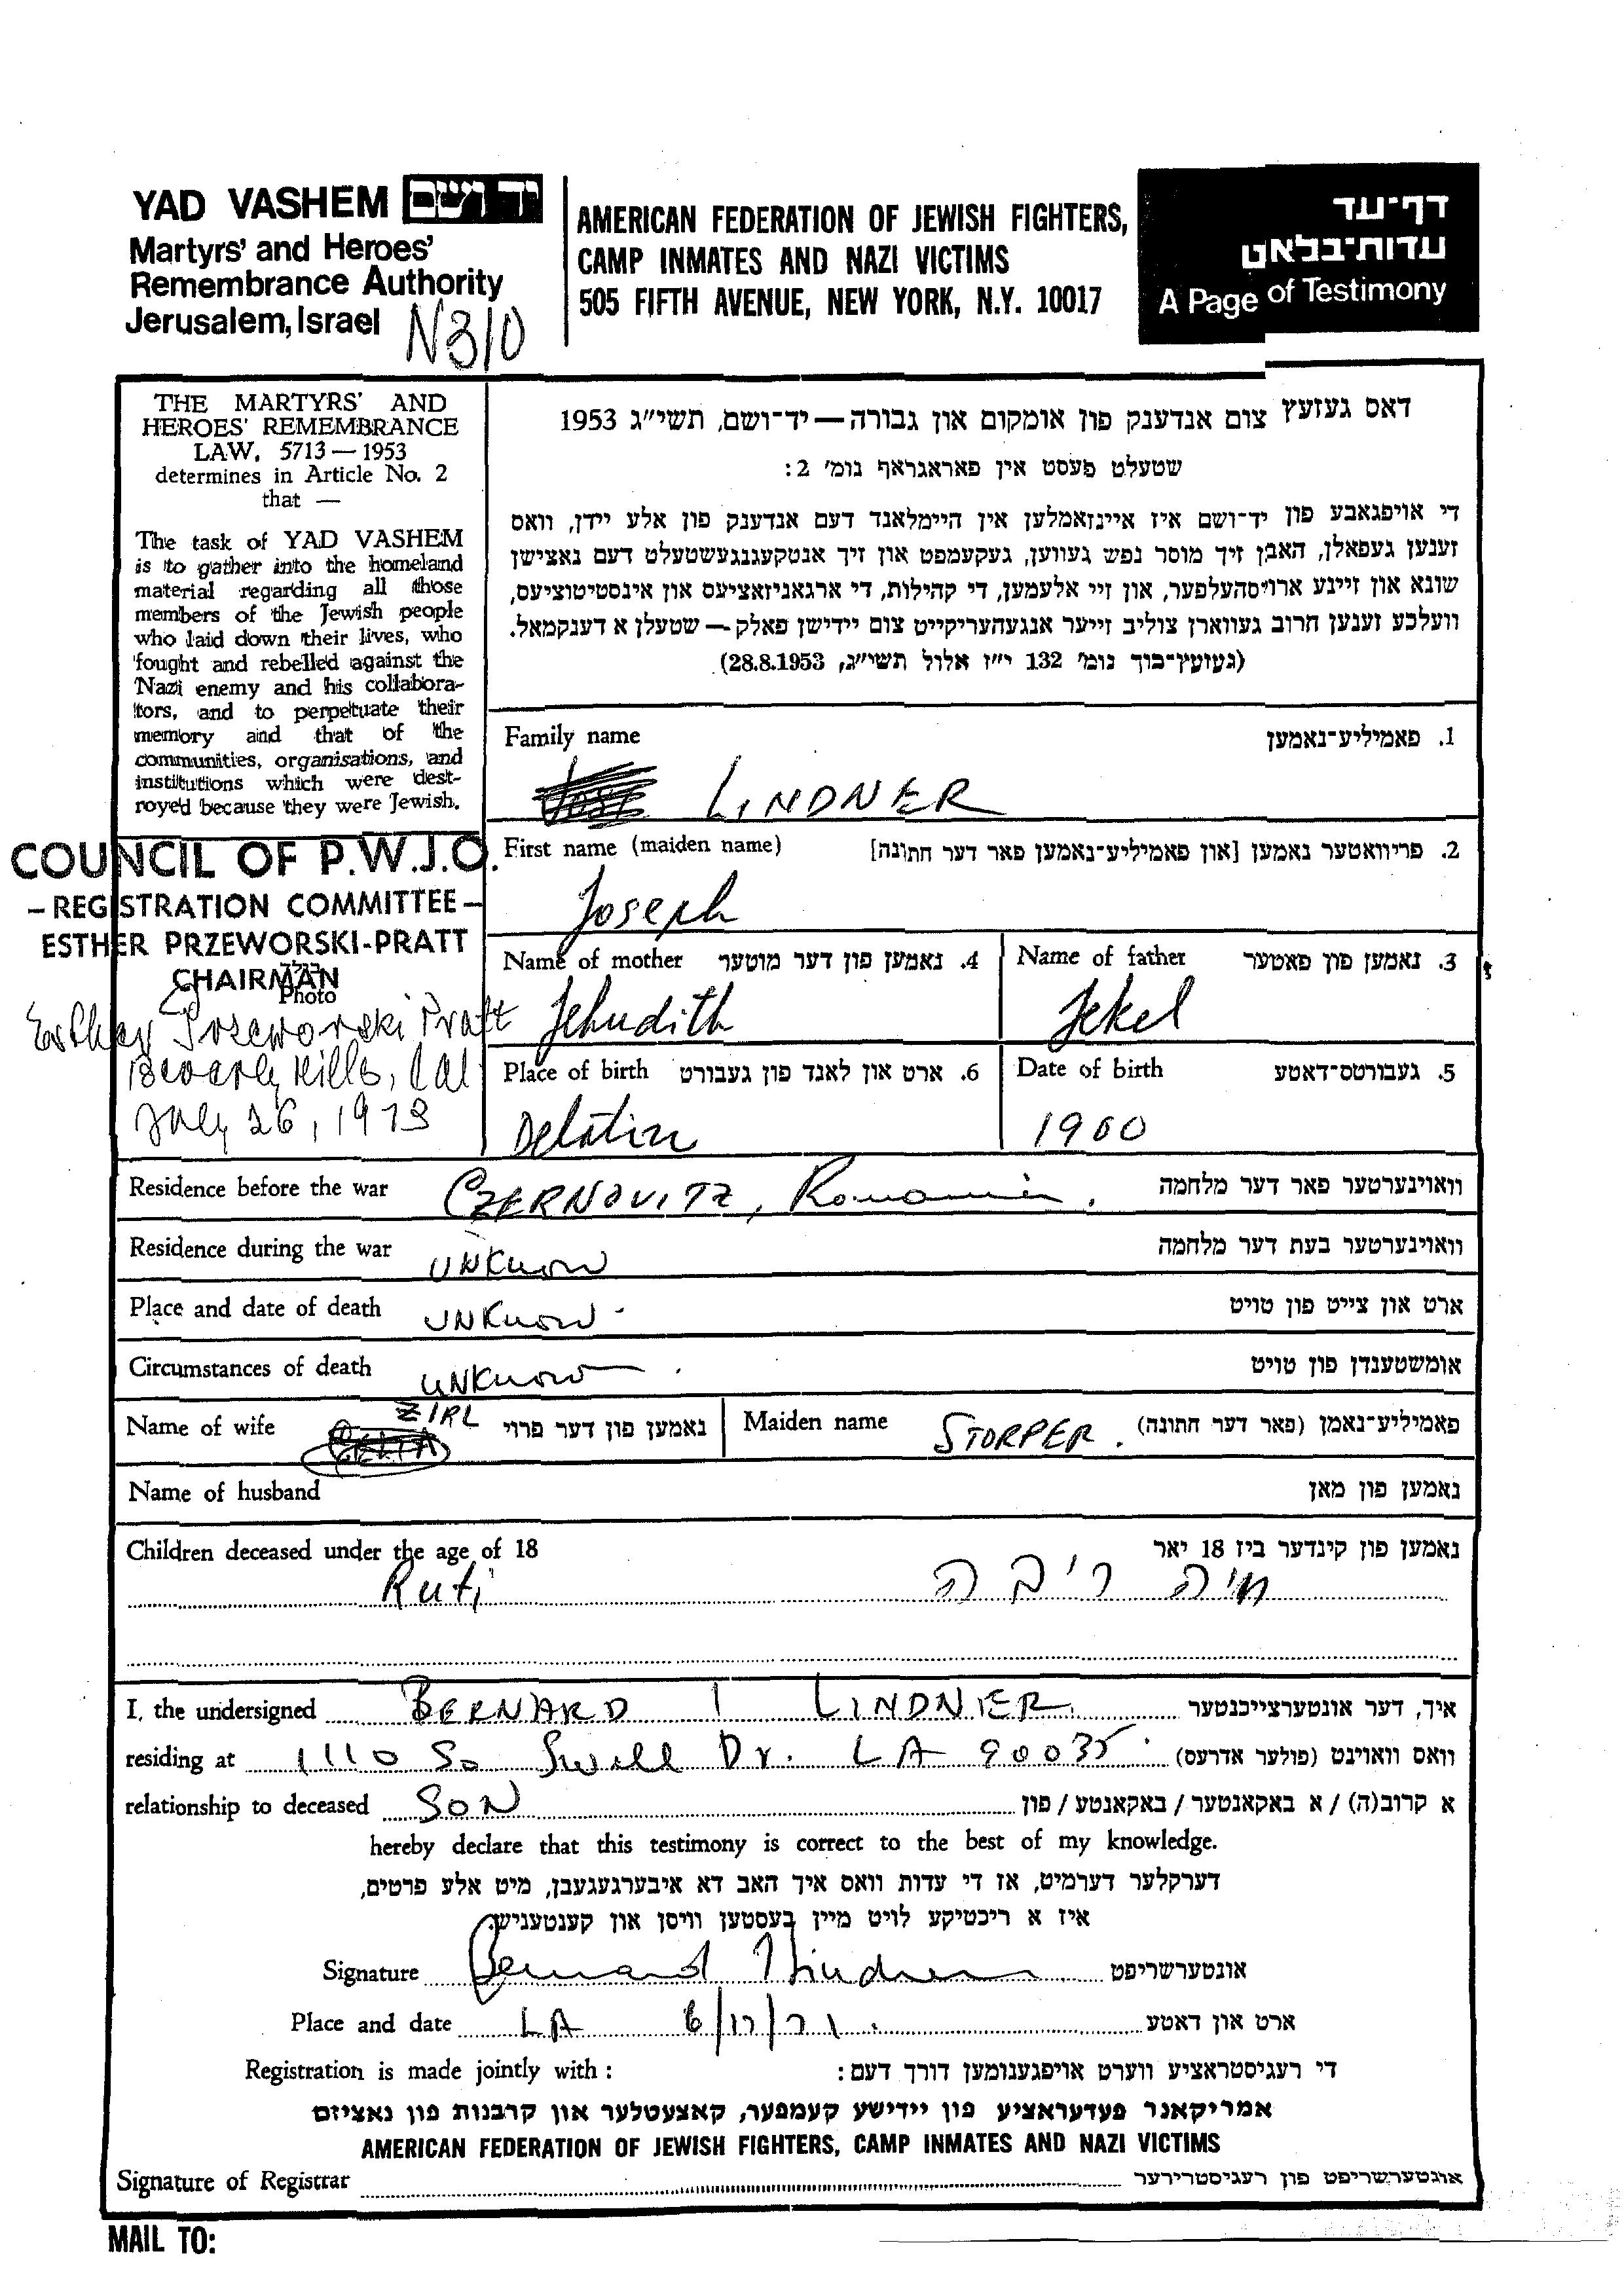 YAD VASHEM יד ושם
Martyrs' and Heroes'
Remembrance Authority
Jerusalem, Israel
N310
AMERICAN FEDERATION OF JEWISH FIGHTERS,
CAMP INMATES AND NAZI VICTIMS
505 FIFTH AVENUE, NEW YORK, N.Y. 10017
דף-עד
עדות-בלאט
A Page of Testimony
THE MARTYRS' AND
HEROES' REMEMBRANCE
LAW, 5713 — 1953
determines in Article No. 2
that —
The task of YAD VASHEM
is to gather into the homeland
material regarding all those
members of the Jewish people
who laid down their lives, who
fought and rebelled against the
Nazi enemy and his collabora-
tors, and to perpetuate their
memory and that of the
communities, organisations, and
institutions which were dest-
royed because they were Jewish.
COUNCIL OF P.W.J.O.
- REGISTRATION COMMITTEE -
ESTHER PRZEWORSKI-PRATT
CHAIRMAN
Photo
Esther Przeworski Pratt
Beverly Hills, Cal
July 26, 1973
דאס געזעץ צום אנדענק פון אומקום און גבורה — יד-ושם, תשי"ג 1953
שטעלט פעסט אין פאראגראף נומ' 2:
די אויפגאבע פון יד-ושם איז איינזאמלען אין היימלאנד דעם אנדענק פון אלע יידן, וואס
זענען געפאלן, האבן זיך מוסר נפש געווען, געקעמפט און זיך אנטקעגנגעשטעלט דעם נאצישן
שונא און זיינע ארויסהעלפער, און זיי אלעמען, די קהילות, די ארגאניזאציעס און אינסטיטוציעס,
וועלכע זענען חרוב געווארן צוליב זייער אנגעהעריקייט צום יידישן פאלק — שטעלן א דענקמאל.
(געזעץ-בוך נומ' 132 י"ז אלול תשי"ג, 28.8.1953).
Family name 1. פאמיליע-נאמען
LINDNER
First name (maiden name) 2. פריוואטער נאמען [און פאמיליע-נאמען פאר דער חתונה]
Joseph
Name of mother 4. נאמען פון דער מוטער Name of father 3. נאמען פון פאטער
Jehudith Jekel
Place of birth 6. ארט און לאנד פון געבורט Date of birth 5. געבורטס-דאטע
Delatin 1900
Residence before the war CZERNOVITZ, Romania. וואוינערטער פאר דער מלחמה
Residence during the war UNKnow וואוינערטער בעת דער מלחמה
Place and date of death UNKnow - ארט און צייט פון טויט
Circumstances of death UNKnow . אומשטענדן פון טויט
Name of wife ZIRL נאמען פון דער פרוי Maiden name STORPER. פאמיליע-נאמן (פאר דער חתונה)
Name of husband נאמען פון מאן
Children deceased under the age of 18 נאמען פון קינדער ביז 18 יאר
Ruti
I, the undersigned BERNARD I LINDNER איך, דער אונטערצייכנטער
residing at 1110 So Swall Dr. LA 90035 וואס וואוינט (פולער אדרעס)
relationship to deceased SON א קרוב(ה) / א באקאנטער / באקאנטע / פון
hereby declare that this testimony is correct to the best of my knowledge.
דערקלער דערמיט, אז די עדות וואס איך האב דא איבערגעגעבן, מיט אלע פרטים,
איז א ריכטיקע לויט מיין בעסטען וויסן און קענטעניש.
Signature Bernard Lindner אונטערשריפט
Place and date LA 6/17/71. ארט און דאטע
Registration is made jointly with : די רעגיסטראציע ווערט אויפגענומען דורך דעם :
אמריקאנר פעדעראציע פון יידישע קעמפער, קאצעטלער און קרבנות פון נאציזם
AMERICAN FEDERATION OF JEWISH FIGHTERS, CAMP INMATES AND NAZI VICTIMS
Signature of Registrar אונטערשריפט פון רעגיסטרירער
MAIL TO: